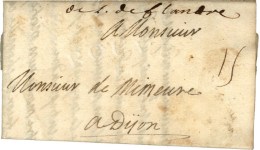 de L. de flandre
a Monsieur
Monsieur de Mimeure
a Dijon